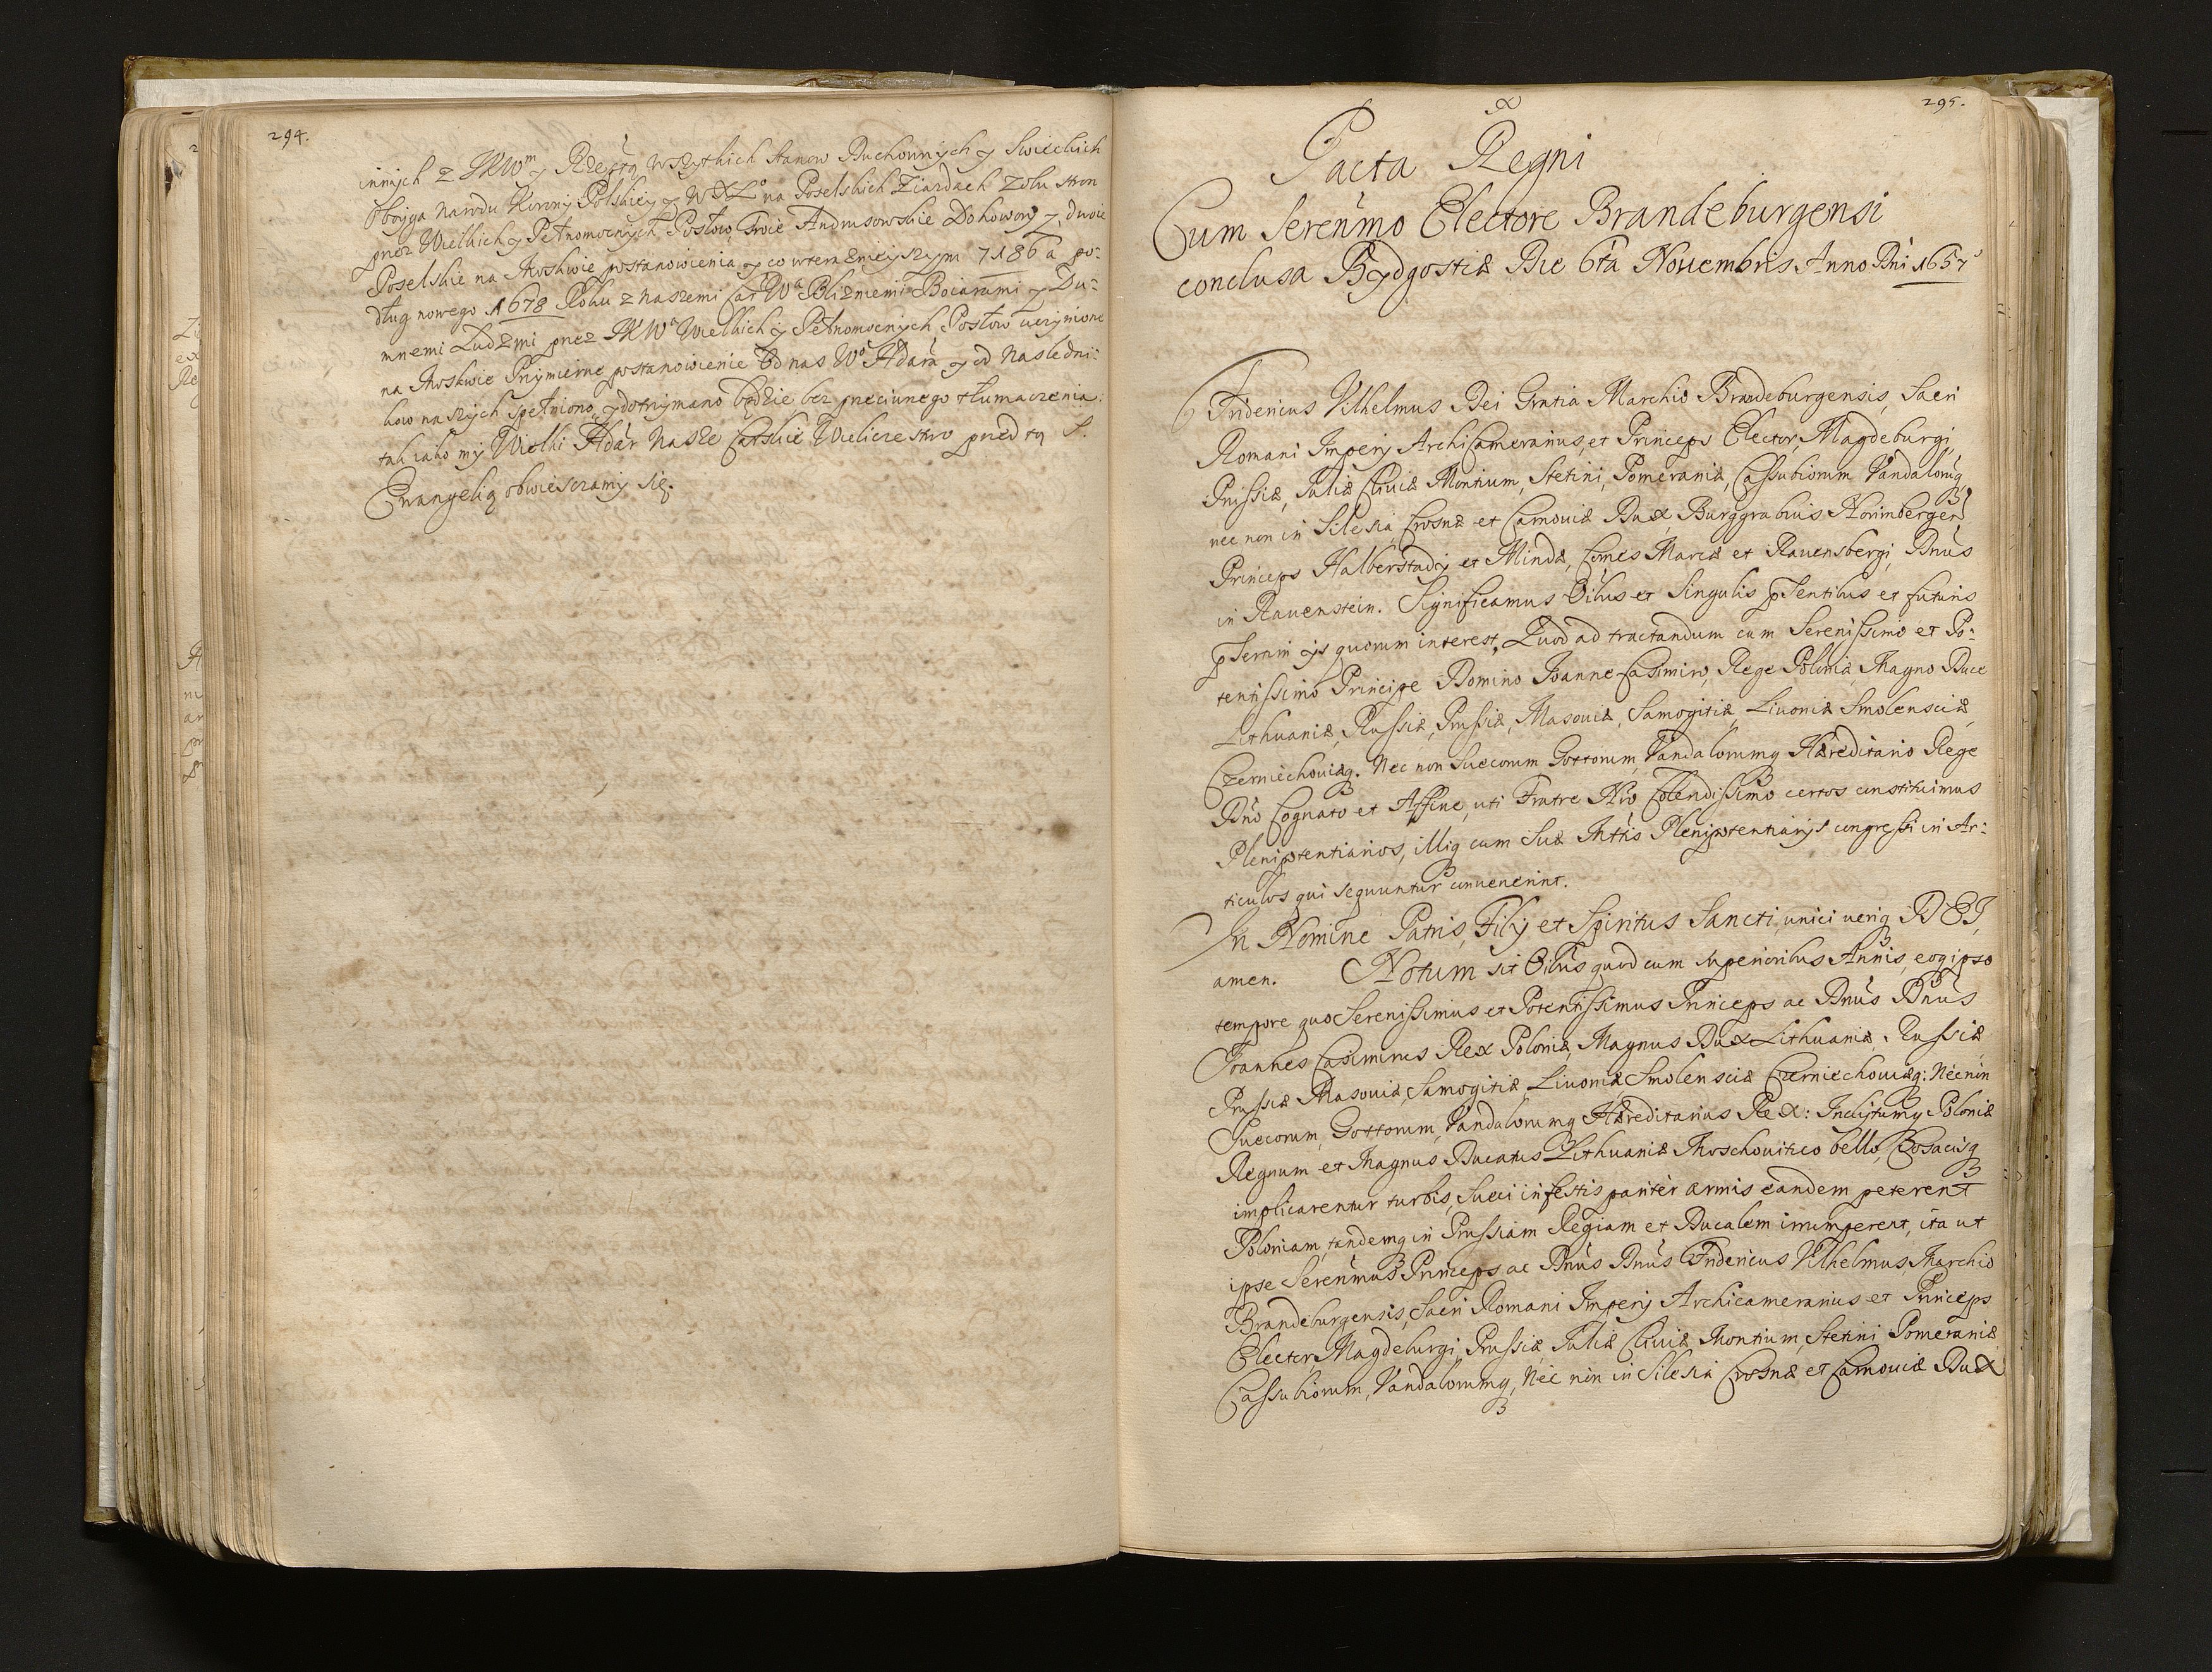 294.
innych z JKWm y Rzeczą wszytkich Stanow Duchownych y Swieckich
oboyga Narodu Korony Polskiey y WXLo na Poselskich Ziazdach z obu stron
przez Wielkich y Pełnomocnych Posłow, troie Andrusowskie Dohowory y dwoie
Poselskie na Moskwie postanowienia y co wteraznieyszym 7186 a po=
dług nowego 1678 Roku z naszemi Car Wa Bliznemi Boiarami y Du=
mnemi Ludzmi przez JKWa Wielkich y Pełnomocnych Posłow uczynione
na Moskwie Przymierne postanowienie od nas Wo Hdara y od Nasledni=
kow naszych spełniono y dotrzymano będzie bez przeciwnego tłumaczenia:
tak iako my Wielki Hdar Nasze Carskie Wieliczestwo przed tą S.
Ewangelią obwieszczamy się.
295.
Pacta Regni
Cum Serenmo Electore Brandeburgensi
conclusa Bydgostiæ Die 6ta Nouembris Anno Dni 1657
Fridericus Vilhelmus Dei Gratia Marchio Brandeburgensis, Sacri
Romani Impery ArchiCamerarius, et Princeps Elector, Magdeburgi,
Prussiæ, Juliæ Cliuiæ Montium, Stetini, Pomeraniæ, Cassubiorum Vandalorūq,
nec non in Silesia, Crosnæ et Carnouiæ Dux, Burggrabius Norimbergen
Princeps Halberstady et Mindæ, Comes Marcæ et Rauensbergi, Dnus
in Rauenstein. Significamus Oibus et Singulis pSentibus et futuris
pSertim ijs quorum interest, Quod ad tractandum cum Serenissimo et Po=
tentissimo Principe Domino Joanne Casimiro, Rege Poloniæ, Magno Duce
Lithuaniæ, Russiæ, Prussiæ, Masouiæ, Samogitiæ, Liuoniæ Smolensciæ,
Czerniechouiæq. Nec non Suecorum Gottorum, Vandalorumq Hæreditario Rege
Dno Cognato et Affine, uti Fratre Nro Colendissimo certos constituimus
Plenipotentiarios, illiq cum Suæ Mttis Plenipotentiarys congressi in Ar=
ticulos qui sequuntur conuenerint.
In Nomine Patris, Fily et Spiritus Sancti, unici veriq DEI,
amen. Notum sit Oibus quod cum superioribus Annis, eoq ipso
tempore quo Serenissimus et Potentissimus Princeps ac Dnus Dnus
Joannes Casimirus Rex Poloniæ, Magnus Dux Lithuaniæ, Russiæ
Prussiæ Masouiæ, Samogitiæ Liuoniæ Smolensciæ Czerniechouiæq: Nec non
Suecorum, Gottorum, Vandalorumq Hæreditarius Rex: Inclytumq Poloniæ
Regnum et Magnus Ducatus Lithuaniæ Moschouitico bello, Cosacisq
implicarentur turbis, Sueci infestis pariter armis eandem peterent
Poloniam, tandemq in Prussiam Regiam et Ducalem irrumperent, ita ut
ipse Serenmus Princeps ac Dnus Dnus Fridericus Vilhelmus, Marchio
Brandeburgensis, Sacri Romani Impery Archicamerarius et Princeps
Elector, Magdeburgi, Prussiæ, Juliæ Cliuiæ Montium, Stetini Pomeraniæ
Cassubiorum, Vandalorumq, Nec non in Silesia Crosnæ et Carnouiæ Dux